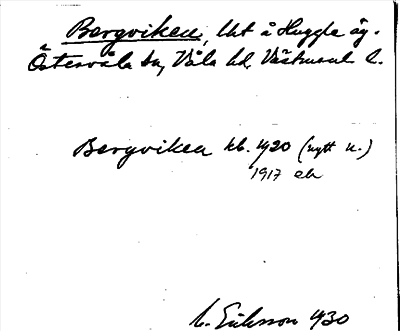 Bergviken, lht å Huggle äg.
Östervåla sn, Våla hd, Västmanl. l.
Bergviken hb. 1920 (nytt n.)
1917 eh
Eriksson 1930